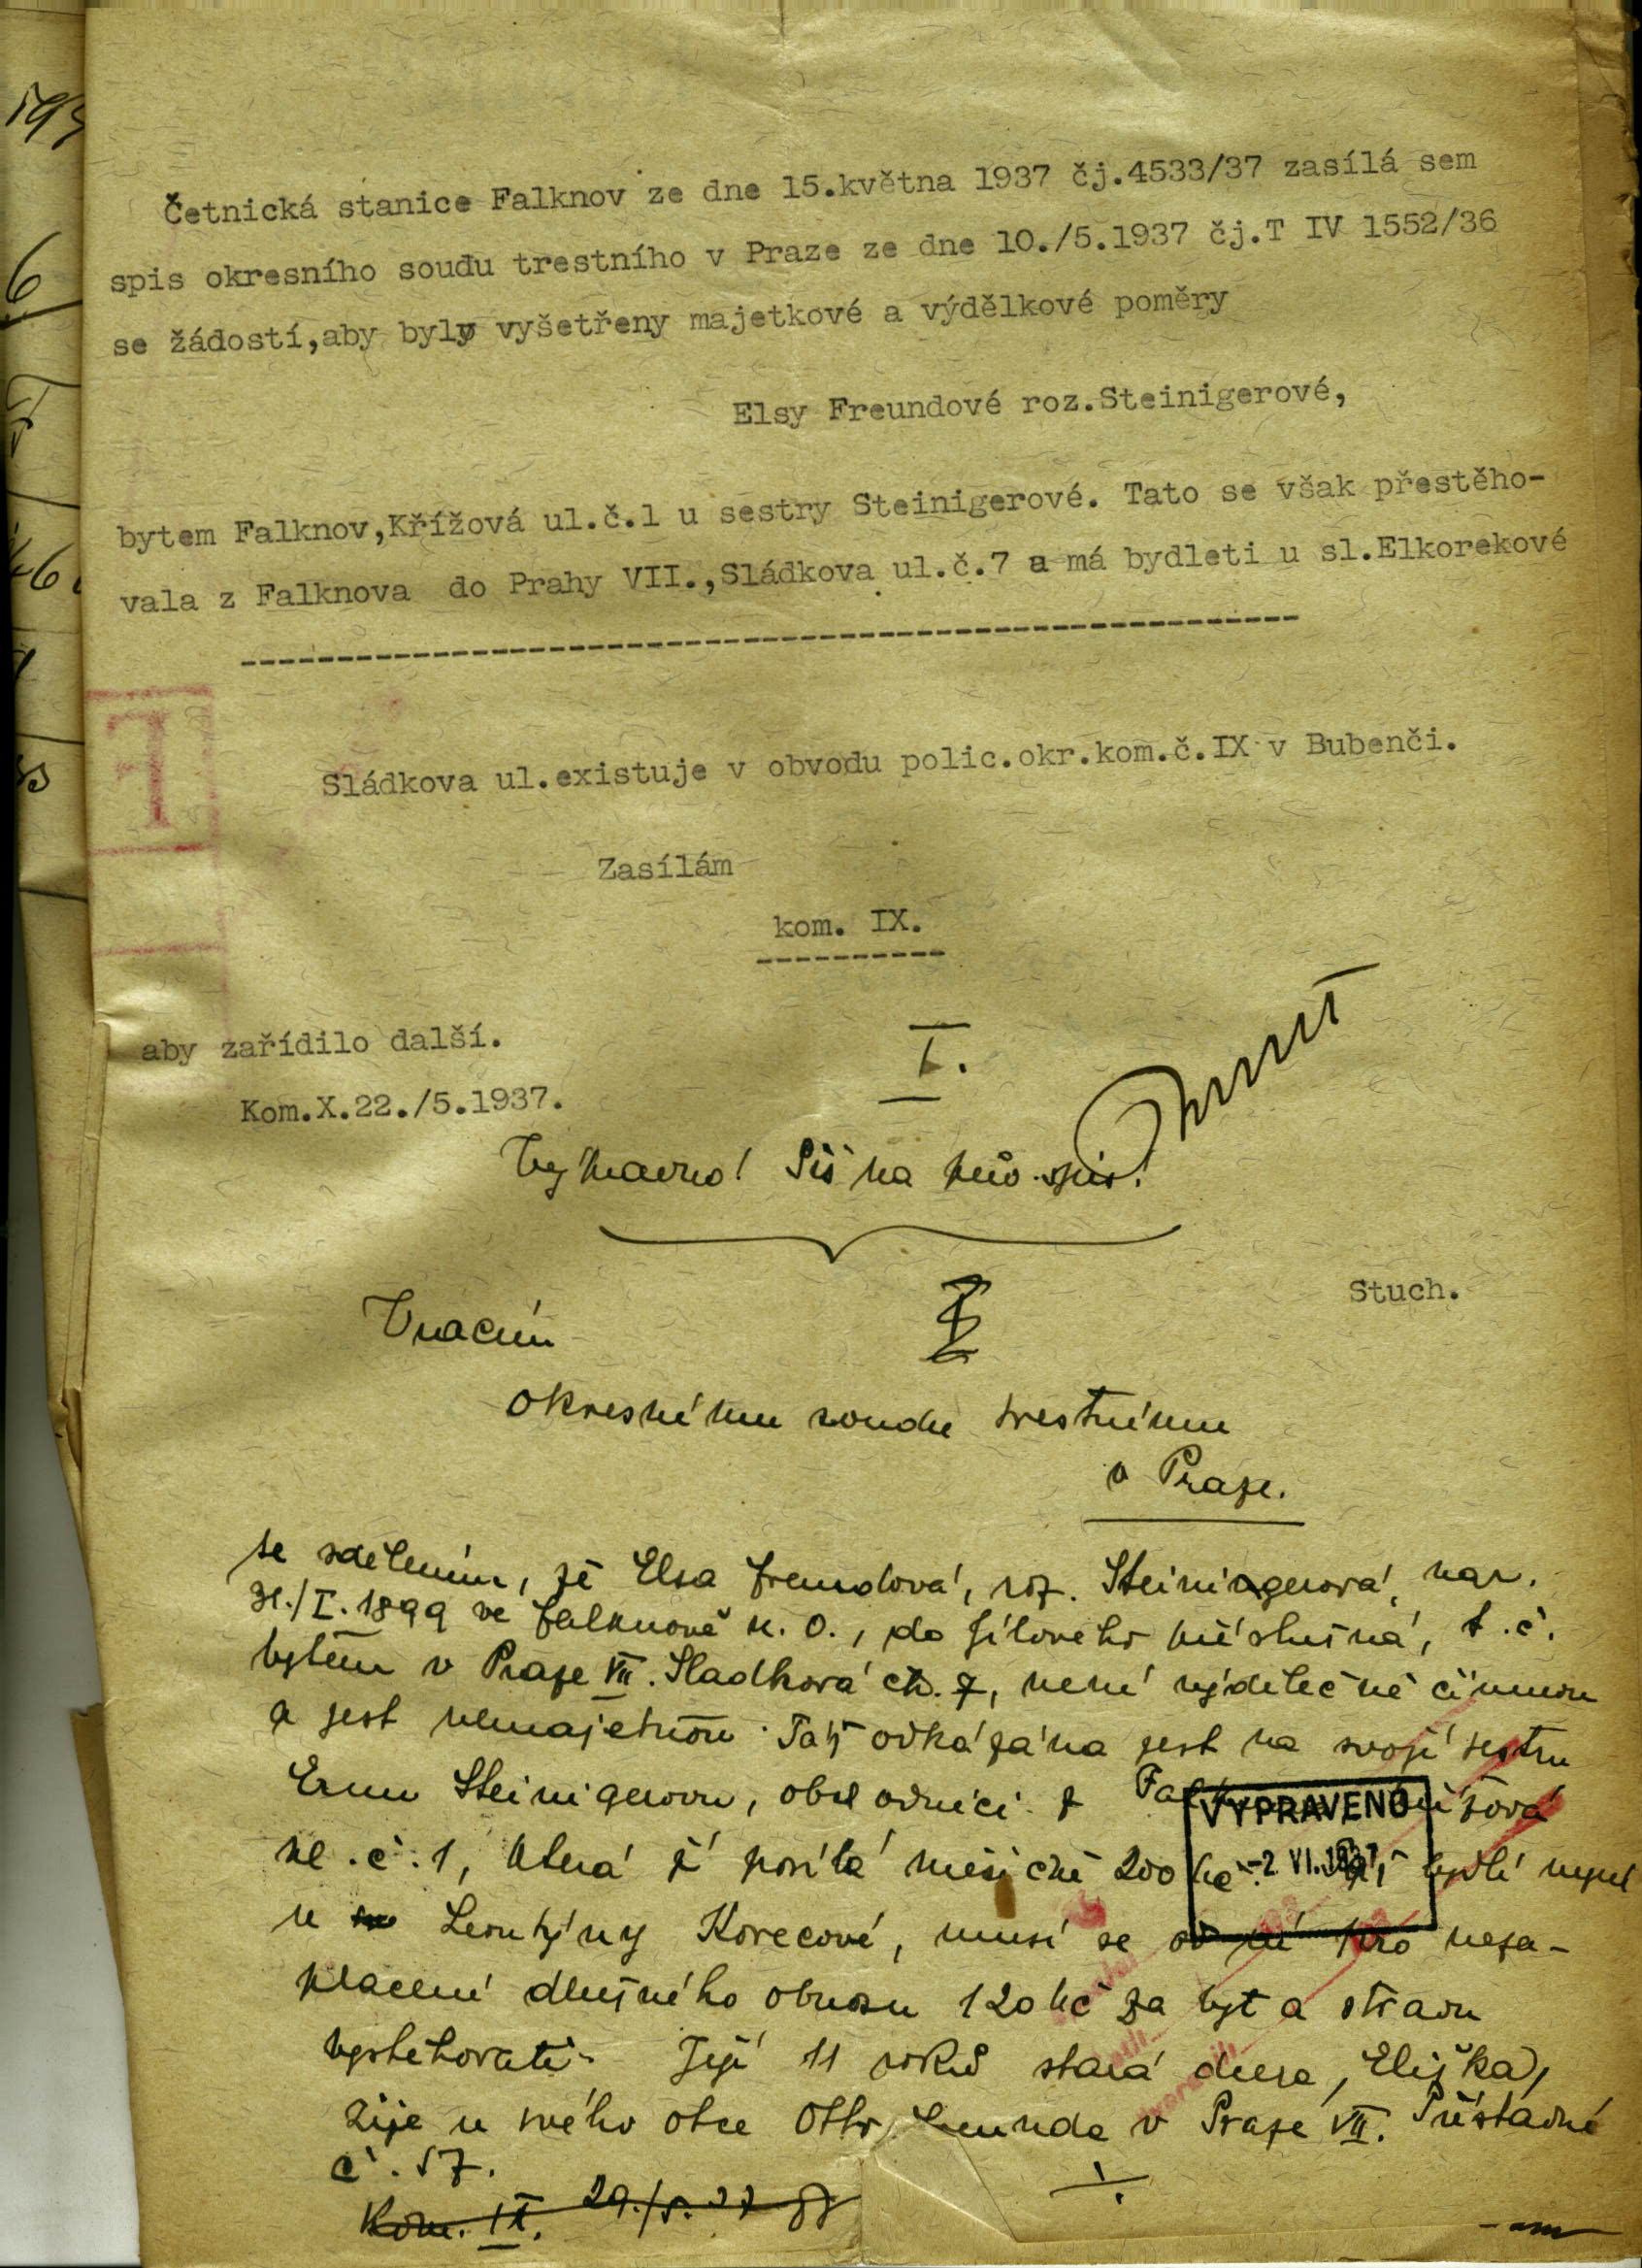 Četnická stanice Falknov ze dne 15.května 1937 čj.4533/37 zasílá sem
spis okresního soudu trestního v Praze ze dne 10./5.1937 čj.T IV 1552/36
se žádostí,aby byly vyšetřeny majetkové a výdělkové poměry
Elsy Freundové roz.Steinigerové,
bytem Falknov,Křížová ul.č.1 u sestry Steinigerové. Tato se však přestěho-
vala z Falknova do Prahy VII.,Sládkova ul.č.7 a má bydleti u sl.Elkorekové
Sládkova ul.existuje v obvodu polic.okr.kom.č.IX v Bubenči.
Zasílám
kom. IX.
aby zařídilo další.
I.
Kom.X.22./5.1937.
na spis!
Stuch.
Vracím
okresnímu soudu trestnímu
v Praze.
se sdělením, že Elsa Freundová, roz. Steinigerová, nar.
I. 1899 ve Falknově n. O., do Jílového příslušná, t. č.
bytem v Praze VII. Sladkova čp. 7, není výdělečně činnou
a jest nemajetnou. Táž odkázána jest na svoji sestru
Ernu Steinigerovou, obchodnici z
ul. č. 1, která jí posílá měsíčně 200 Kč. Táž bydlí nyní
VYPRAVENO
-2 VI. 1937
u Leontýny Korecové, musí se od ní pro neza-
placení dlužného obnosu 120 Kč za byt a stravu
vystěhovati. Její 11 roků stará dcera, Eliška,
žije u svého otce Otty Freunda v Praze VII. Přístavní
č. 57.
Kom. IX. 29./5. 37